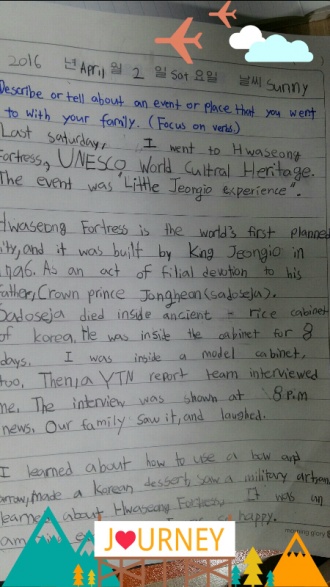 2016 년 April 월 2 일 Sat 요일 날씨 Sunny
Describe or tell about an event or place that you went
to with your family. (Focus on verbs.)
Last saturday, I went to Hwaseong
Fortress, UNESCO World Cultral Heritage.
The event was "Little Jeorgio Experience".
Hwaseong Fortress is the world's first planned
city, and it was built by King Jeongio in
1796. As an act of filial devotion to his
father, Crown prince Jongheon (sadoseja).
Sadoseja died inside ancient - rice cabinet
of korea. He was inside the cabinet for 8
days. I was inside a model cabinet,
too, Then, a YTN report team interviewed
me. The interview was shown at 8 P.M
news. Our family saw it, and laughed.
I learned about how to use a bow and
arrow, made a Korean dessert, saw a military
learned about Hwaseong Fortress. It was an
happy.
JOURNEY